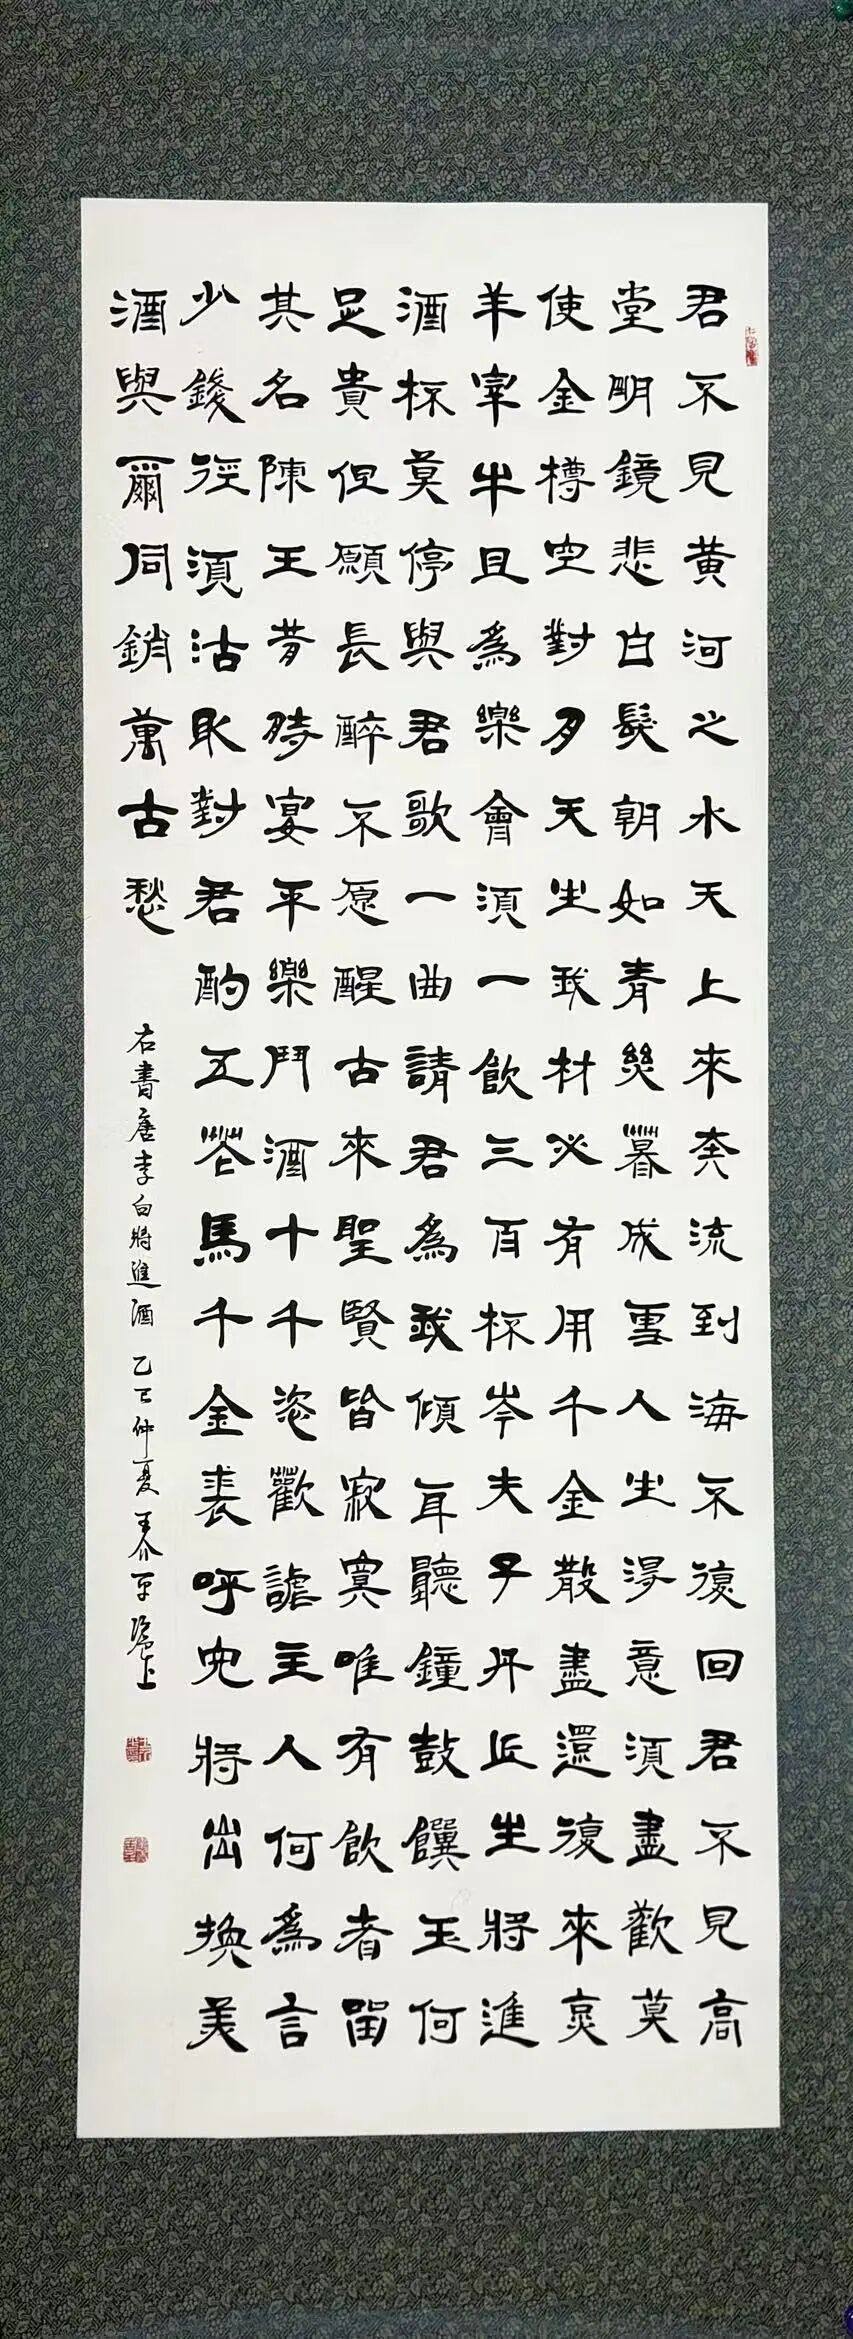 君不見黃河之水天上來奔流到海不復回君不見高
堂明鏡悲白髮朝如青絲暮成雪人生得意須盡歡莫
使金樽空對月天生我材必有用千金散盡還復來烹
羊宰牛且為樂會須一飲三百杯岑夫子丹丘生將進
酒杯莫停與君歌一曲請君為我傾耳聽鐘鼓饌玉何
足貴但願長醉不愿醒古來聖賢皆寂寞唯有飲者留
其名陳王昔時宴平樂鬥酒十千恣歡謔主人何為言
少錢徑須沽取對君酌五花馬千金裘呼兒將出換美
酒與爾同銷萬古愁
右書唐李白將進酒 乙巳仲夏 王